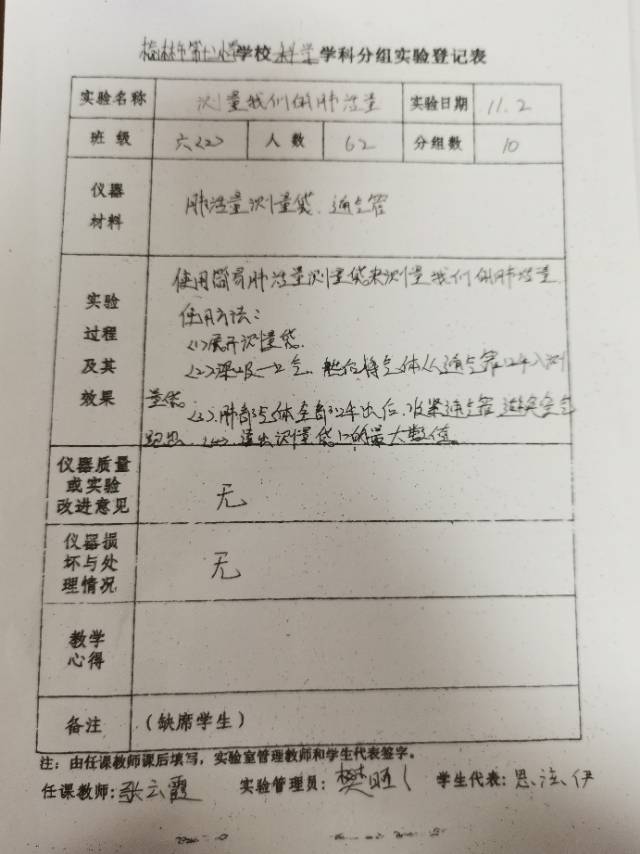 学校 科学 学科分组实验登记表
实验名称 测量我们的肺活量 实验日期 11.2
班级 六(2) 人数 62 分组数 10
仪器材料 肺活量测量袋、通气管
实验过程及其效果
使用简易肺活量测量袋来测量我们的肺活量
使用方法：
(1)展开测量袋.
(2)深吸一口气，然后将气体从通气管吹入测
量袋。(3)、肺部气体全部吹出后，收紧通气管，避免空气
跑出.(4)、读出测量袋上的最大数值。
仪器质量或实验改进意见 无
仪器损坏与处理情况 无
教学心得
备注 (缺席学生)
注：由任课教师课后填写，实验室管理教师和学生代表签字。
任课教师:张云霞 实验管理员: 学生代表: